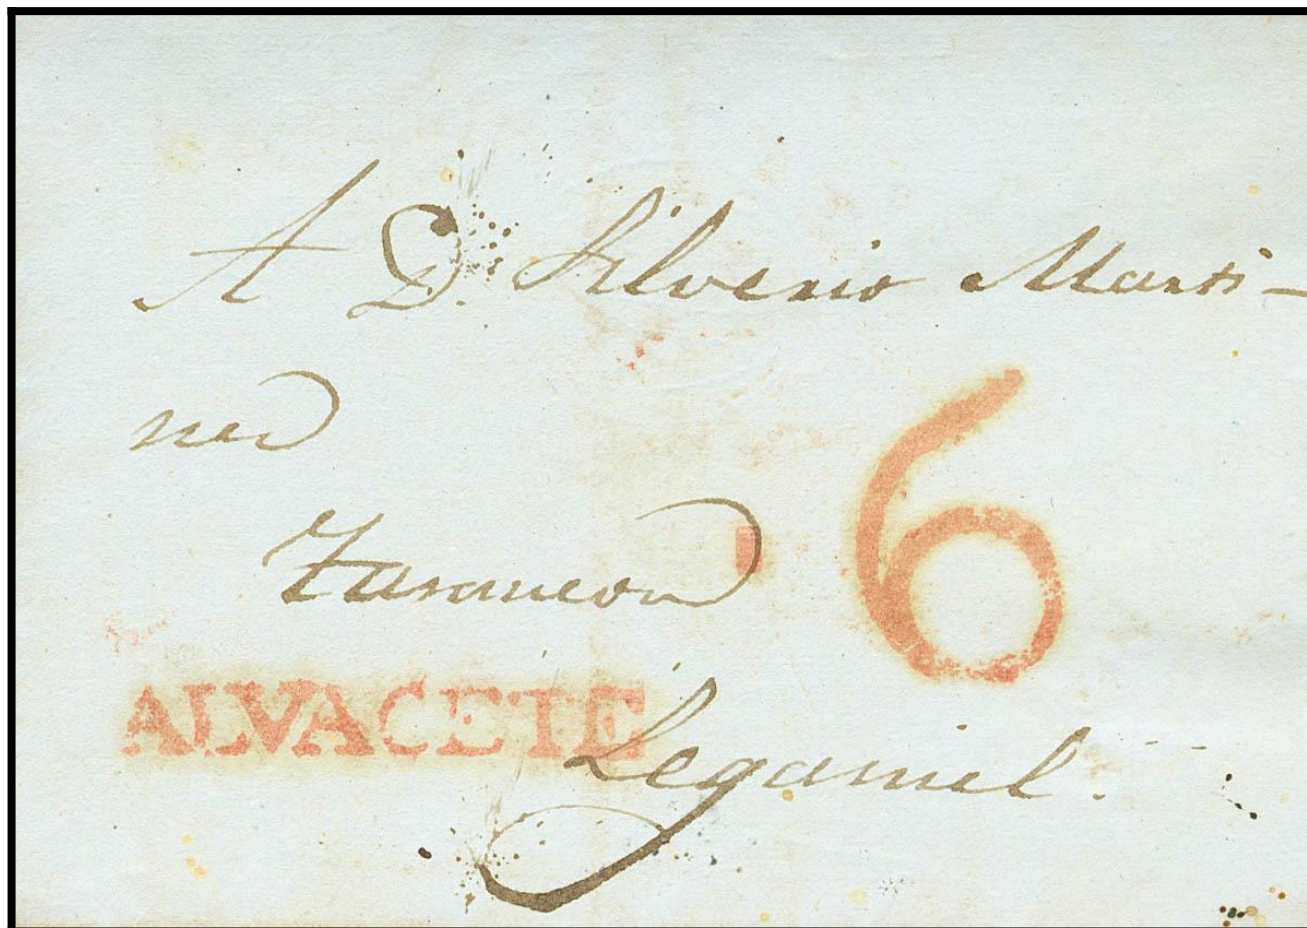 A D. Silverio Marti-
nez
6
Tarancon
ALVACETE
Legamiel.